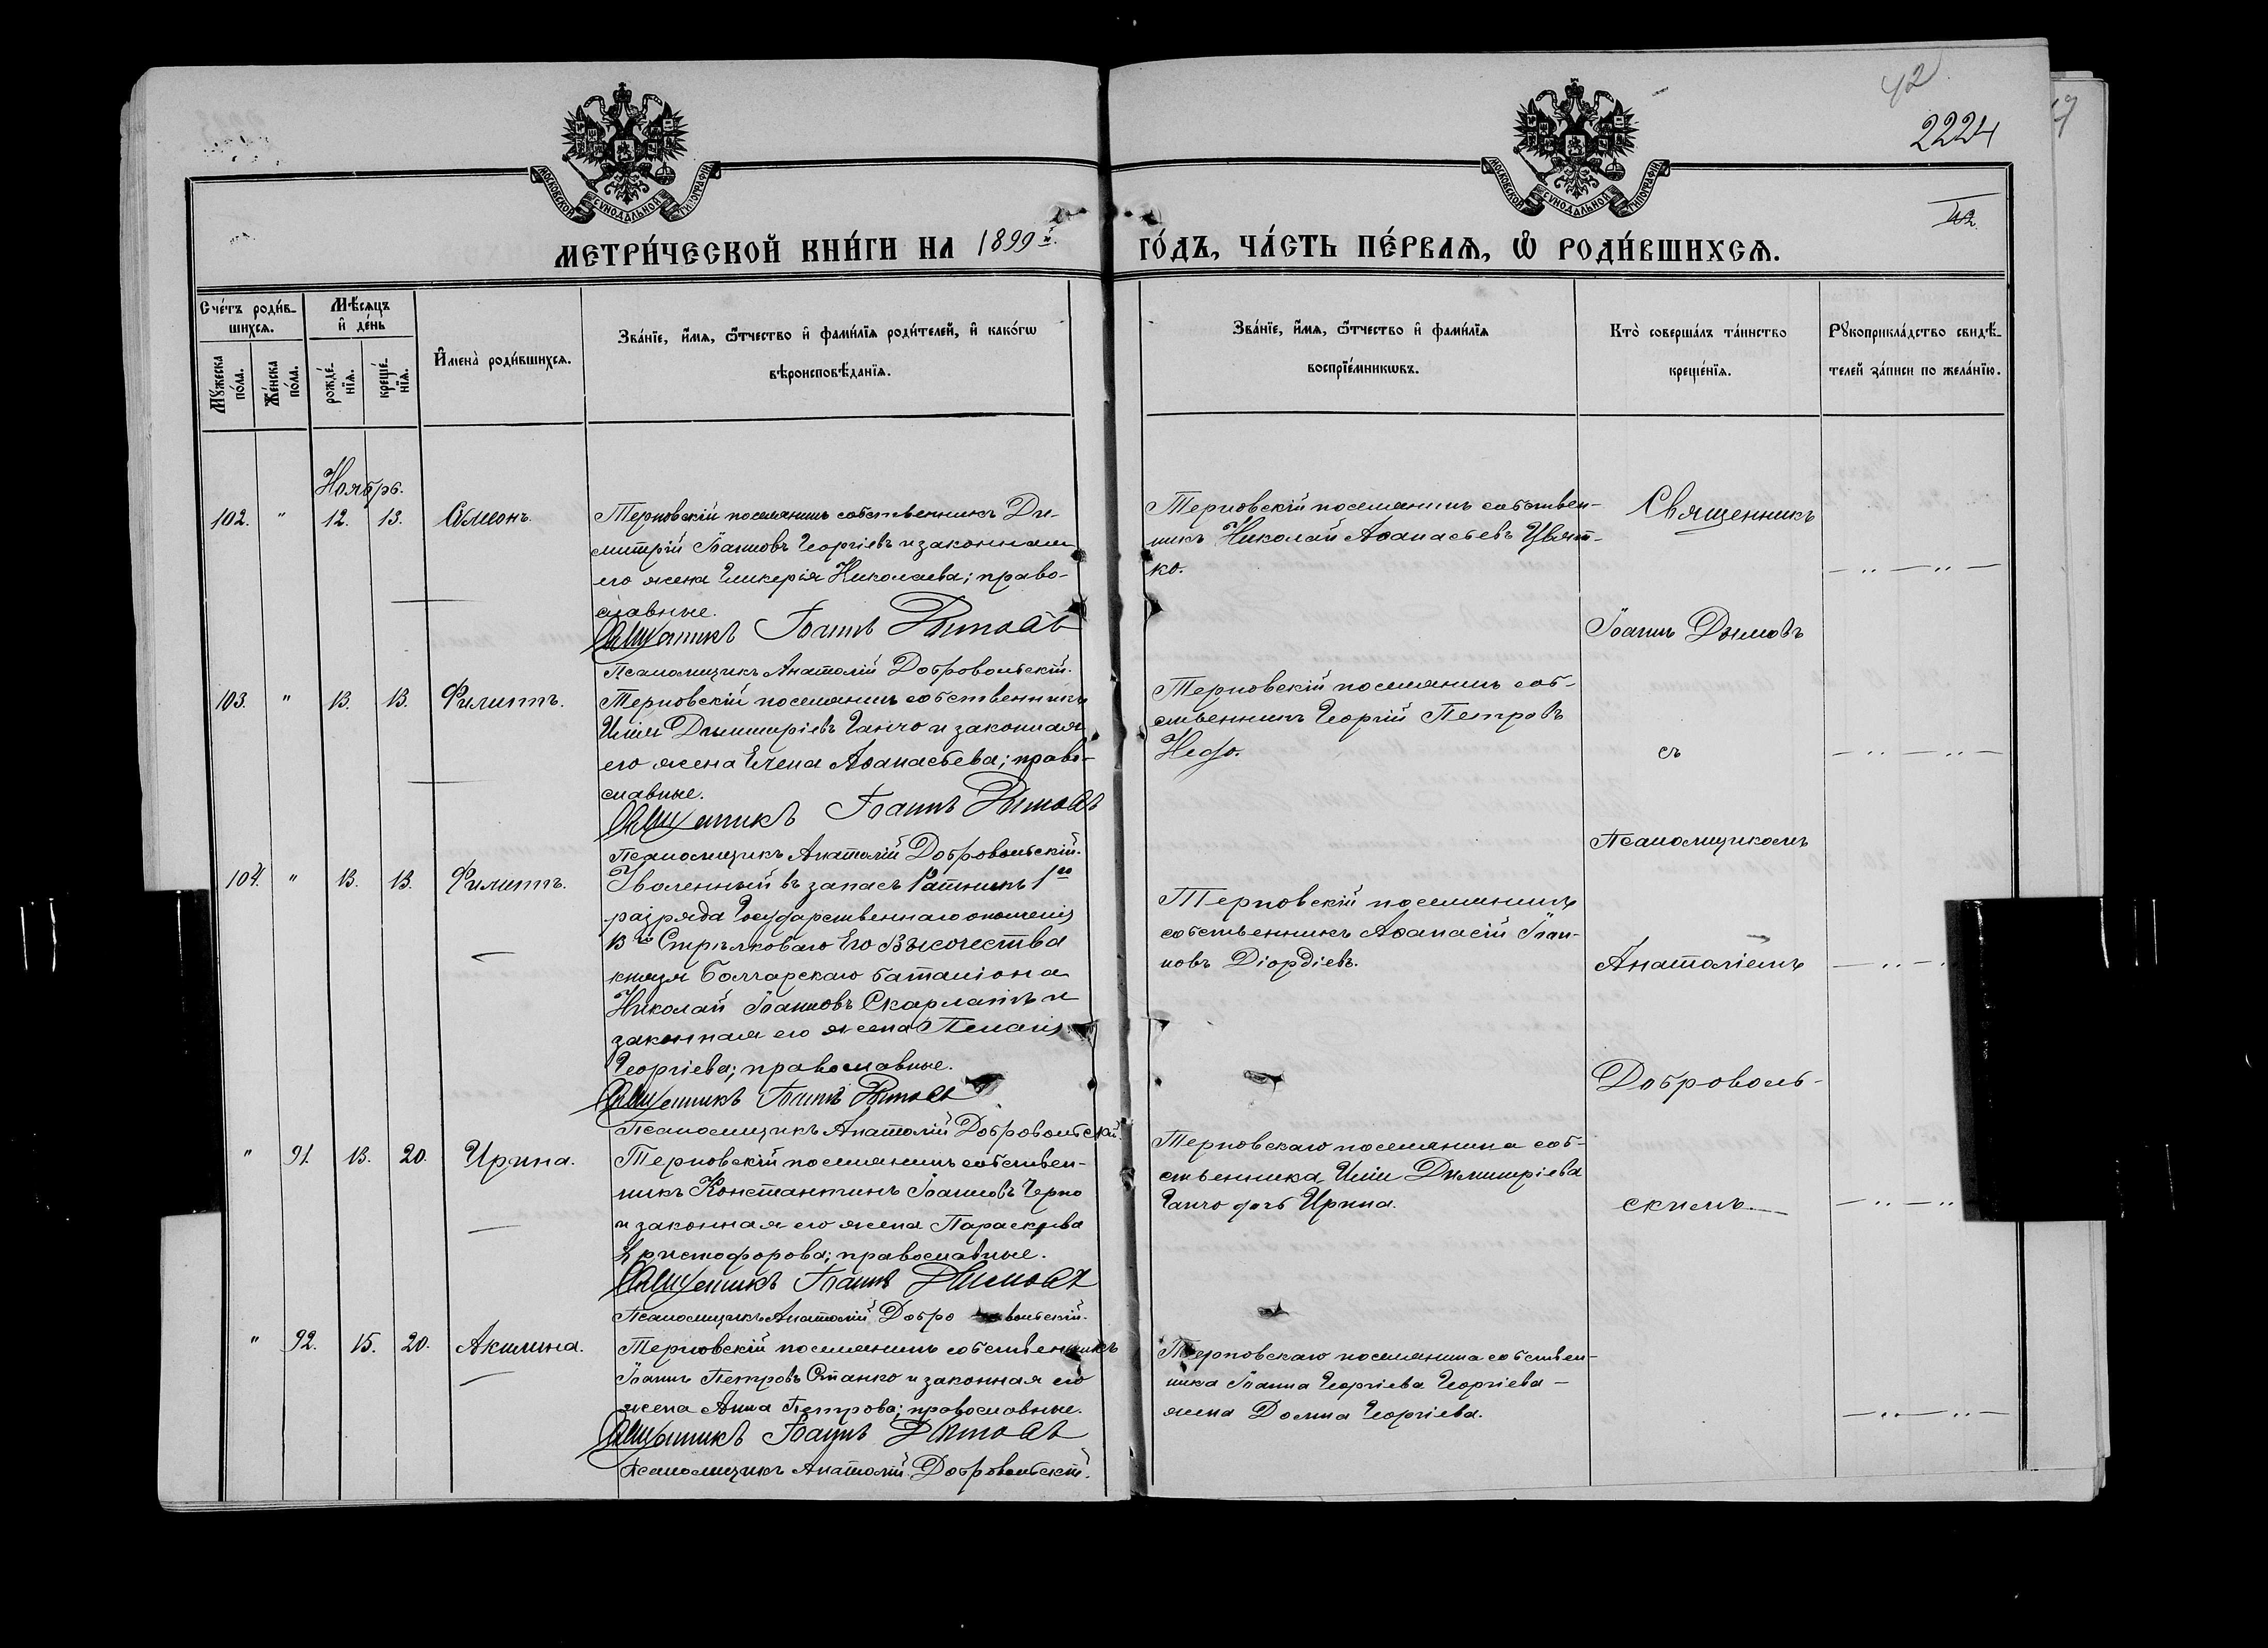 42
2224
МОСКОВСКОЙ СѴНОДАЛЬНОЙ ТИПОГРАФІИ
МОСКОВСКОЙ СѴНОДАЛЬНОЙ ТИПОГРАФІИ
МЕТРИ́ЧЕСКОЙ КНИ́ГИ НА 1899й.
ГО́ДЪ, ЧА́СТЬ ПЕ́РВАѦ, Ѿ РОДИ́ВШИХСѦ.
Сче́тъ роди́в-
шихсѧ.
Мѣ́сѧцъ
и҆ де́нь
Мꙋ́жеска
по́ла.
Же́нска
по́ла.
рожде́-
нїѧ.
креще́-
нїѧ.
И҆мена̀ роди́вшихсѧ.
Зва́нїе, и҆́мѧ, ѻ҆́тчество и҆ фами́лїѧ роди́телей, и҆ како́гѡ
вѣроисповѣ́данїѧ.
Зва́нїе, и҆́мѧ, ѻ҆́тчество и҆ фами́лїѧ
воспрїе́мникѡвъ.
Кто̀ соверша́лъ та́инство
креще́нїѧ.
Рꙋкоприкла́дство свидѣ́-
телей за́писи по жела́нїю.
Ноябрь.
102. " 12. 13. Симеонъ.
Терновскій поселянинъ собственникъ Ди-
митрій Іоанновъ Георгіевъ и законная
его жена Гликерія Николаева; право-
славные.
Священникъ Іоаннъ Дымовъ
Псаломщикъ Анатолій Добровольскій.
Терновскій поселянинъ собствен-
никъ Николай Аѳанасьевъ Цвят-
ко.
Священникъ
Іоаннъ Дымовъ
103. " 13. 13. Филиппъ.
Терновскій поселянинъ собственникъ
Илія Димитріевъ Ганчо и законная
его жена Елена Аѳанасьева; право-
славные.
Священникъ Іоаннъ Дымовъ
Псаломщикъ Анатолій Добровольскій.
Терновскій поселянинъ соб-
ственникъ Георгій Петровъ
съ
Псаломщикомъ
104. " 13. 13. Филиппъ.
Уволенный въ запасъ Ратникъ 1го
разряда Государственнаго ополченія
13го Стрѣлковаго Его Высочества
князя Болгарскаго баталіона
Николай Іоанновъ Скарлатъ и
законная его жена Пелагія
Георгіева; православные.
Священникъ Іоаннъ Дымовъ
Псаломщикъ Анатолій Добровольскій.
Терновскій поселянинъ
собственникъ Аѳанасій Іоан-
новъ Діордіевъ.
Анатоліемъ
Доброволь-
скимъ
" 91. 13. 20. Ирина.
Терновскій поселянинъ собствен-
никъ Константинъ Іоанновъ Черно
и законная его жена Параскева
Христофорова; православные.
Священникъ Іоаннъ Дымовъ
Псаломщикъ Анатолій Добровольскій.
Терновскаго поселянина соб-
ственника Иліи Димитріева
Ганчо дочь Ирина.
" 92. 15. 20. Акилина.
Терновскій поселянинъ собственникъ
Іоаннъ Петровъ Станко и законная его
жена Анна Петрова; православные.
Священникъ Іоаннъ Дымовъ
Псаломщикъ Анатолій Добровольскій.
Терновскаго поселянина собствен-
ника Іоанна Георгіева Георгіева -
жена Домна Георгіева.